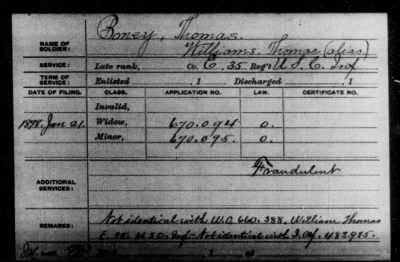 Boney, Thomas.
NAME OF SOLDIER: Williams, Thomas (alias)
SERVICE: Late rank, Co. E, 35 Reg't U.S.C. Inf
TERM OF SERVICE: Enlisted , 1 Discharged , 1
DATE OF FILING. CLASS. APPLICATION NO. LAW. CERTIFICATE NO.
Invalid,
1898, Jan. 21. Widow, 670.094 0.
Minor, 670.095 0.
Fraudulent
ADDITIONAL SERVICES:
REMARKS: Not identical with W.O. 660.388. William Thomas
E 35 U.S.C. Inf - Not identical with I.Of. 483.985.